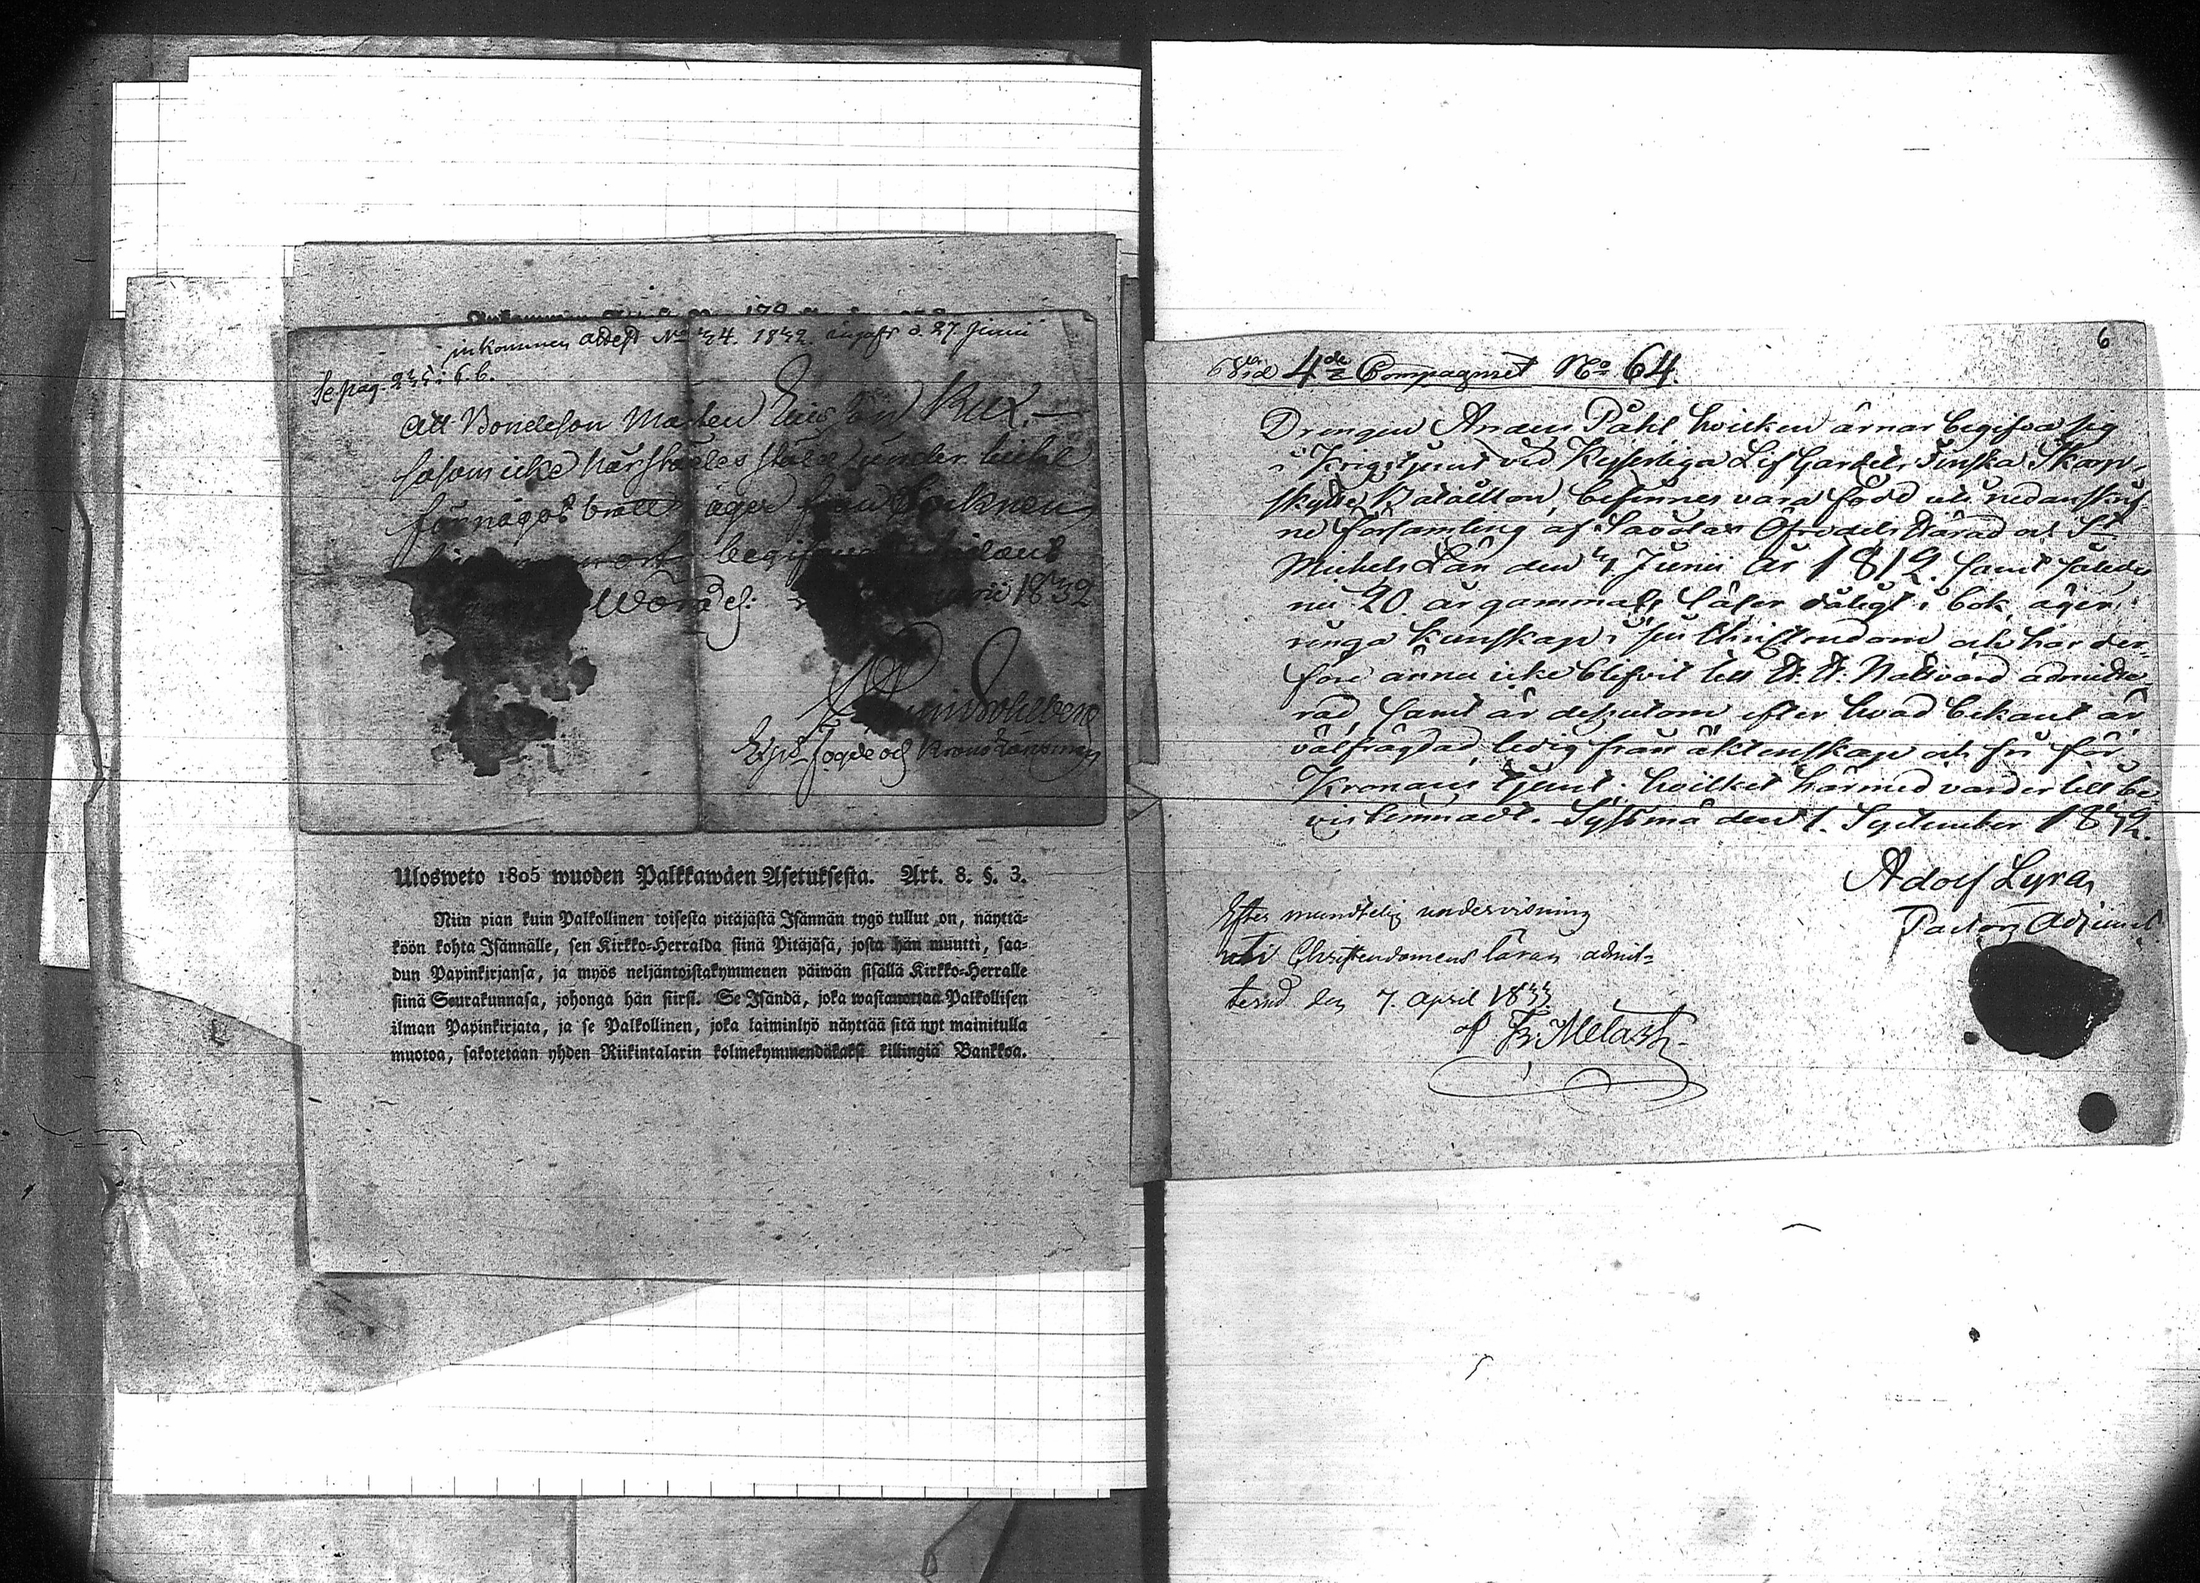 inkommen attest No 34. 1832. ingafs d. 27 Junii
Se pag. 235 i k.b.
Att Bondeson Mårten
såsom icke härstädes stäld under tiltal
för något brott äger från Socknen
begifva
1832
Exps. fogde och Krono Länsman
Ulosweto 1805 wuoden Palkkawäen Asetuksesta. Art. 8. §. 3.
Niin pian kuin Palkollinen toisesta pitäjästä Isännän tygö tullut on, näyttä-
köön kohta Isännälle, sen Kirkko-Herralda siinä Pitäjäsä, josta hän muutti, saa-
dun Papinkirjansa, ja myös neljäntoistakymmenen päiwän sisällä Kirkko-Herralle
siinä Seurakunnasa, johonga hän siirsi. Se Isändä, joka wastanottaa Palkollisen
ilman Papinkirjata, ja se Palkollinen, joka laiminlyö näyttää sitä nyt mainitulla
muotoa, sakotetaan yhden Riikintalarin kolmekymmendäkaksi killingiä Bankkoa.
6
Vid 4de Compagniet No 64.
Drengen Anders Påhl hvilken ärnar begifva sig
i Krigstjenst vid Kejserliga Lif Gardets Finska Skarp-
skytte Bataillon, befinnes vara född uti nedanskrif-
ne församling af Savolax Öfredels Härad och St
Michels Län den 3 Junii år 1812. samt således
nu 20 år gammal, läser dåligt i bok, äger
ringa kunskap i sin Christendom och har der-
före ännu icke blifvit till H. H. Nattvard admitte-
rad, samt är dessutom efter hvad bekant är
välfrägdad, ledig från äktenskap och fri för
Kronans tjenst; hvilket härmed varder till be-
vis lemnadt. Syssmä den 1. September 1832.
Adolf Lyra
Pastors Adjunct
Efter mundtelig undervisning
uti Christendomens läran admit-
terad den 7. April 1833
af Fr. Melart